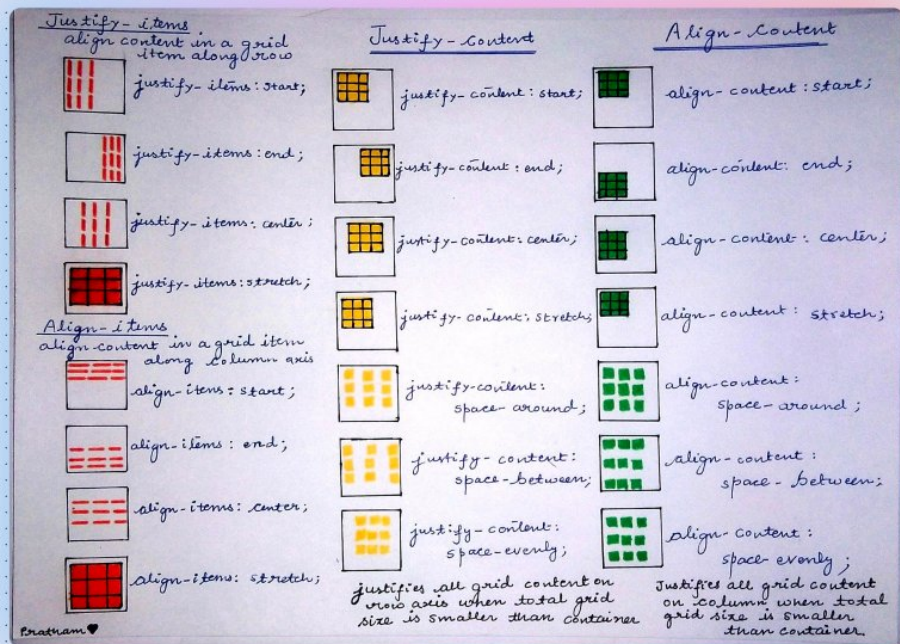 Justify-items
align content in a grid
item along row
justify-items: start;
justify-items: end;
justify-items: center;
justify-items: stretch;
Align-items
align content in a grid item
along column axis
align-items: start;
align-items: end;
align-items: center;
align-items: stretch;
Pratham
Justify-Content
justify-content: start;
justify-content: end;
justify-content: center;
justify-content: stretch;
justify-content:
space-around;
justify-content:
space-between;
justify-content:
space-evenly;
justifies all grid content on
row axis when total grid
size is smaller than container
Align-Content
align-content: start;
align-content: end;
align-content: center;
align-content: stretch;
align-content:
space-around;
align-content:
space-between;
align-content:
space-evenly;
Justifies all grid content
on column when total
grid size is smaller
than container